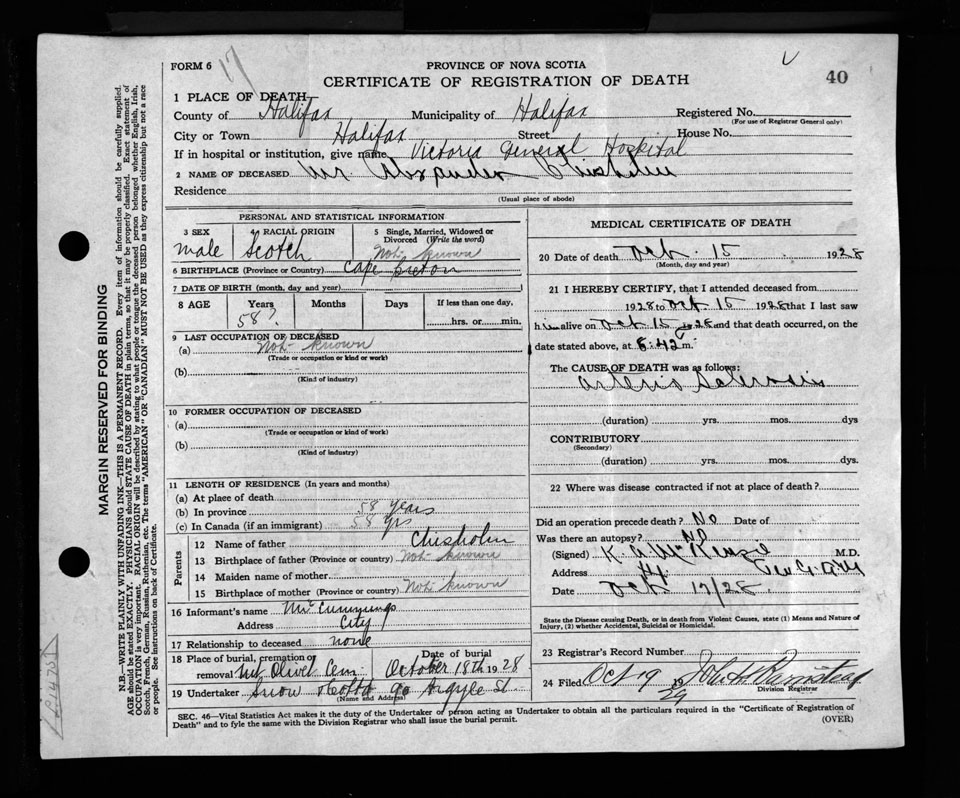 FORM 6
17
PROVINCE OF NOVA SCOTIA
CERTIFICATE OF REGISTRATION OF DEATH
40
1 PLACE OF DEATH
County of Halifax Municipality of Halifax Registered No.
(For use of Registrar General only)
City or Town Halifax Street House No.
If in hospital or institution, give name Victoria General Hospital
2 NAME OF DECEASED Mr. Alexander Chisholm
Residence
(Usual place of abode)
PERSONAL AND STATISTICAL INFORMATION
3 SEX male
4 RACIAL ORIGIN Scotch
5 Single, Married, Widowed or Divorced (Write the word) Not known
6 BIRTHPLACE (Province or Country) Cape Breton
7 DATE OF BIRTH (month, day and year)
8 AGE Years Months Days If less than one day,
58? hrs. or min.
9 LAST OCCUPATION OF DECEASED
(a) Not known
(Trade or occupation or kind of work)
(b)
(Kind of industry)
10 FORMER OCCUPATION OF DECEASED
(a)
(Trade or occupation or kind of work)
(b)
(Kind of industry)
11 LENGTH OF RESIDENCE (In years and months)
(a) At place of death
(b) In province 58 years
(c) In Canada (if an immigrant) 58 yrs
Parents
12 Name of father Chisholm
13 Birthplace of father (Province or country) Not known
14 Maiden name of mother
15 Birthplace of mother (Province or country) Not known
16 Informant's name Mr Cummings
Address City
17 Relationship to deceased none
18 Place of burial, cremation or removal Mt Olivet Cem Date of burial October 18th 1928
19 Undertaker Snow 90 Argyle St.
(Name and Address)
MEDICAL CERTIFICATE OF DEATH
20 Date of death Oct. 15 1928
(Month, day and year)
21 I HEREBY CERTIFY, that I attended deceased from
1928 to Oct. 15 1928 that I last saw
him alive on Oct 15 1928 and that death occurred, on the
date stated above, at 8:42 m.
The CAUSE OF DEATH was as follows:
Arterio Sclerosis
(duration) yrs. mos. dys
CONTRIBUTORY
(Secondary)
(duration) yrs. mos. dys.
22 Where was disease contracted if not at place of death?
Did an operation precede death? No Date of
Was there an autopsy? No
(Signed) K. A. McKenzie M.D.
Address
Date Oct 17/28
State the Disease causing Death, or in death from Violent Causes, state (1) Means and Nature of
Injury, (2) whether Accidental, Suicidal or Homicidal.
23 Registrar's Record Number
24 Filed Oct 19 19
Division Registrar
SEC. 46—Vital Statistics Act makes it the duty of the Undertaker or person acting as Undertaker to obtain all the particulars required in the "Certificate of Registration of
Death" and to fyle the same with the Division Registrar who shall issue the burial permit.
(OVER)
MARGIN RESERVED FOR BINDING
N.B.—WRITE PLAINLY WITH UNFADING INK—THIS IS A PERMANENT RECORD. Every item of information should be carefully supplied.
AGE should be stated EXACTLY. PHYSICIANS should STATE CAUSE OF DEATH in plain terms, so that it may be properly classified. Exact statement of
OCCUPATION is very important. RACIAL ORIGIN will be described by stating to what people or tongue the deceased person belonged whether English, Irish,
Scotch, French, German, Russian, Ruthenian, etc. The terms "AMERICAN" OR "CANADIAN" MUST NOT BE USED as they express citizenship but not a race
or people. See instructions on back of Certificate.